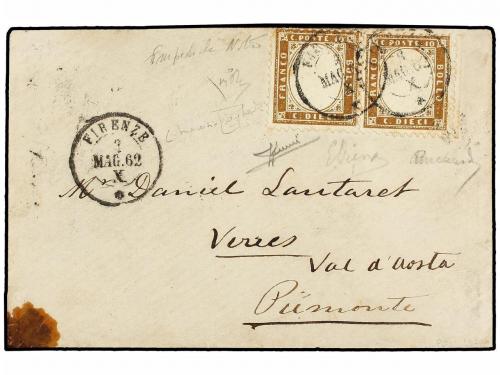 FRANCO C POSTE 10 BOLLO C. DIECI
FRANCO C POSTE 10 BOLLO C. DIECI
FIRENZE
3
MAG. 62
X
Mr Daniel Lantaret
Verres
Val d'Aosta
Piémonte
EDiena